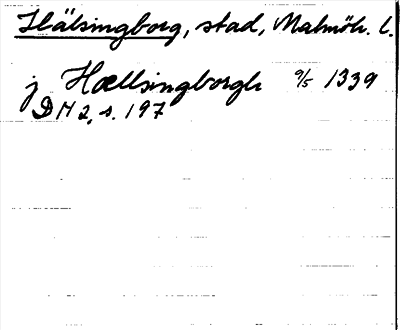 Hälsingborg, stad, Malmöh. l.
j Hællsingborgh 9/5 1339
DN 2, s. 197